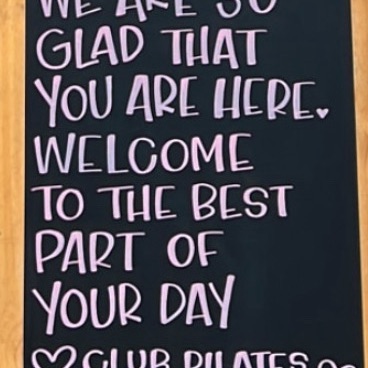 WE ARE SO
GLAD THAT
YOU ARE HERE.
WELCOME
TO THE BEST
PART OF
YOUR DAY
♡ CLUB PILATES